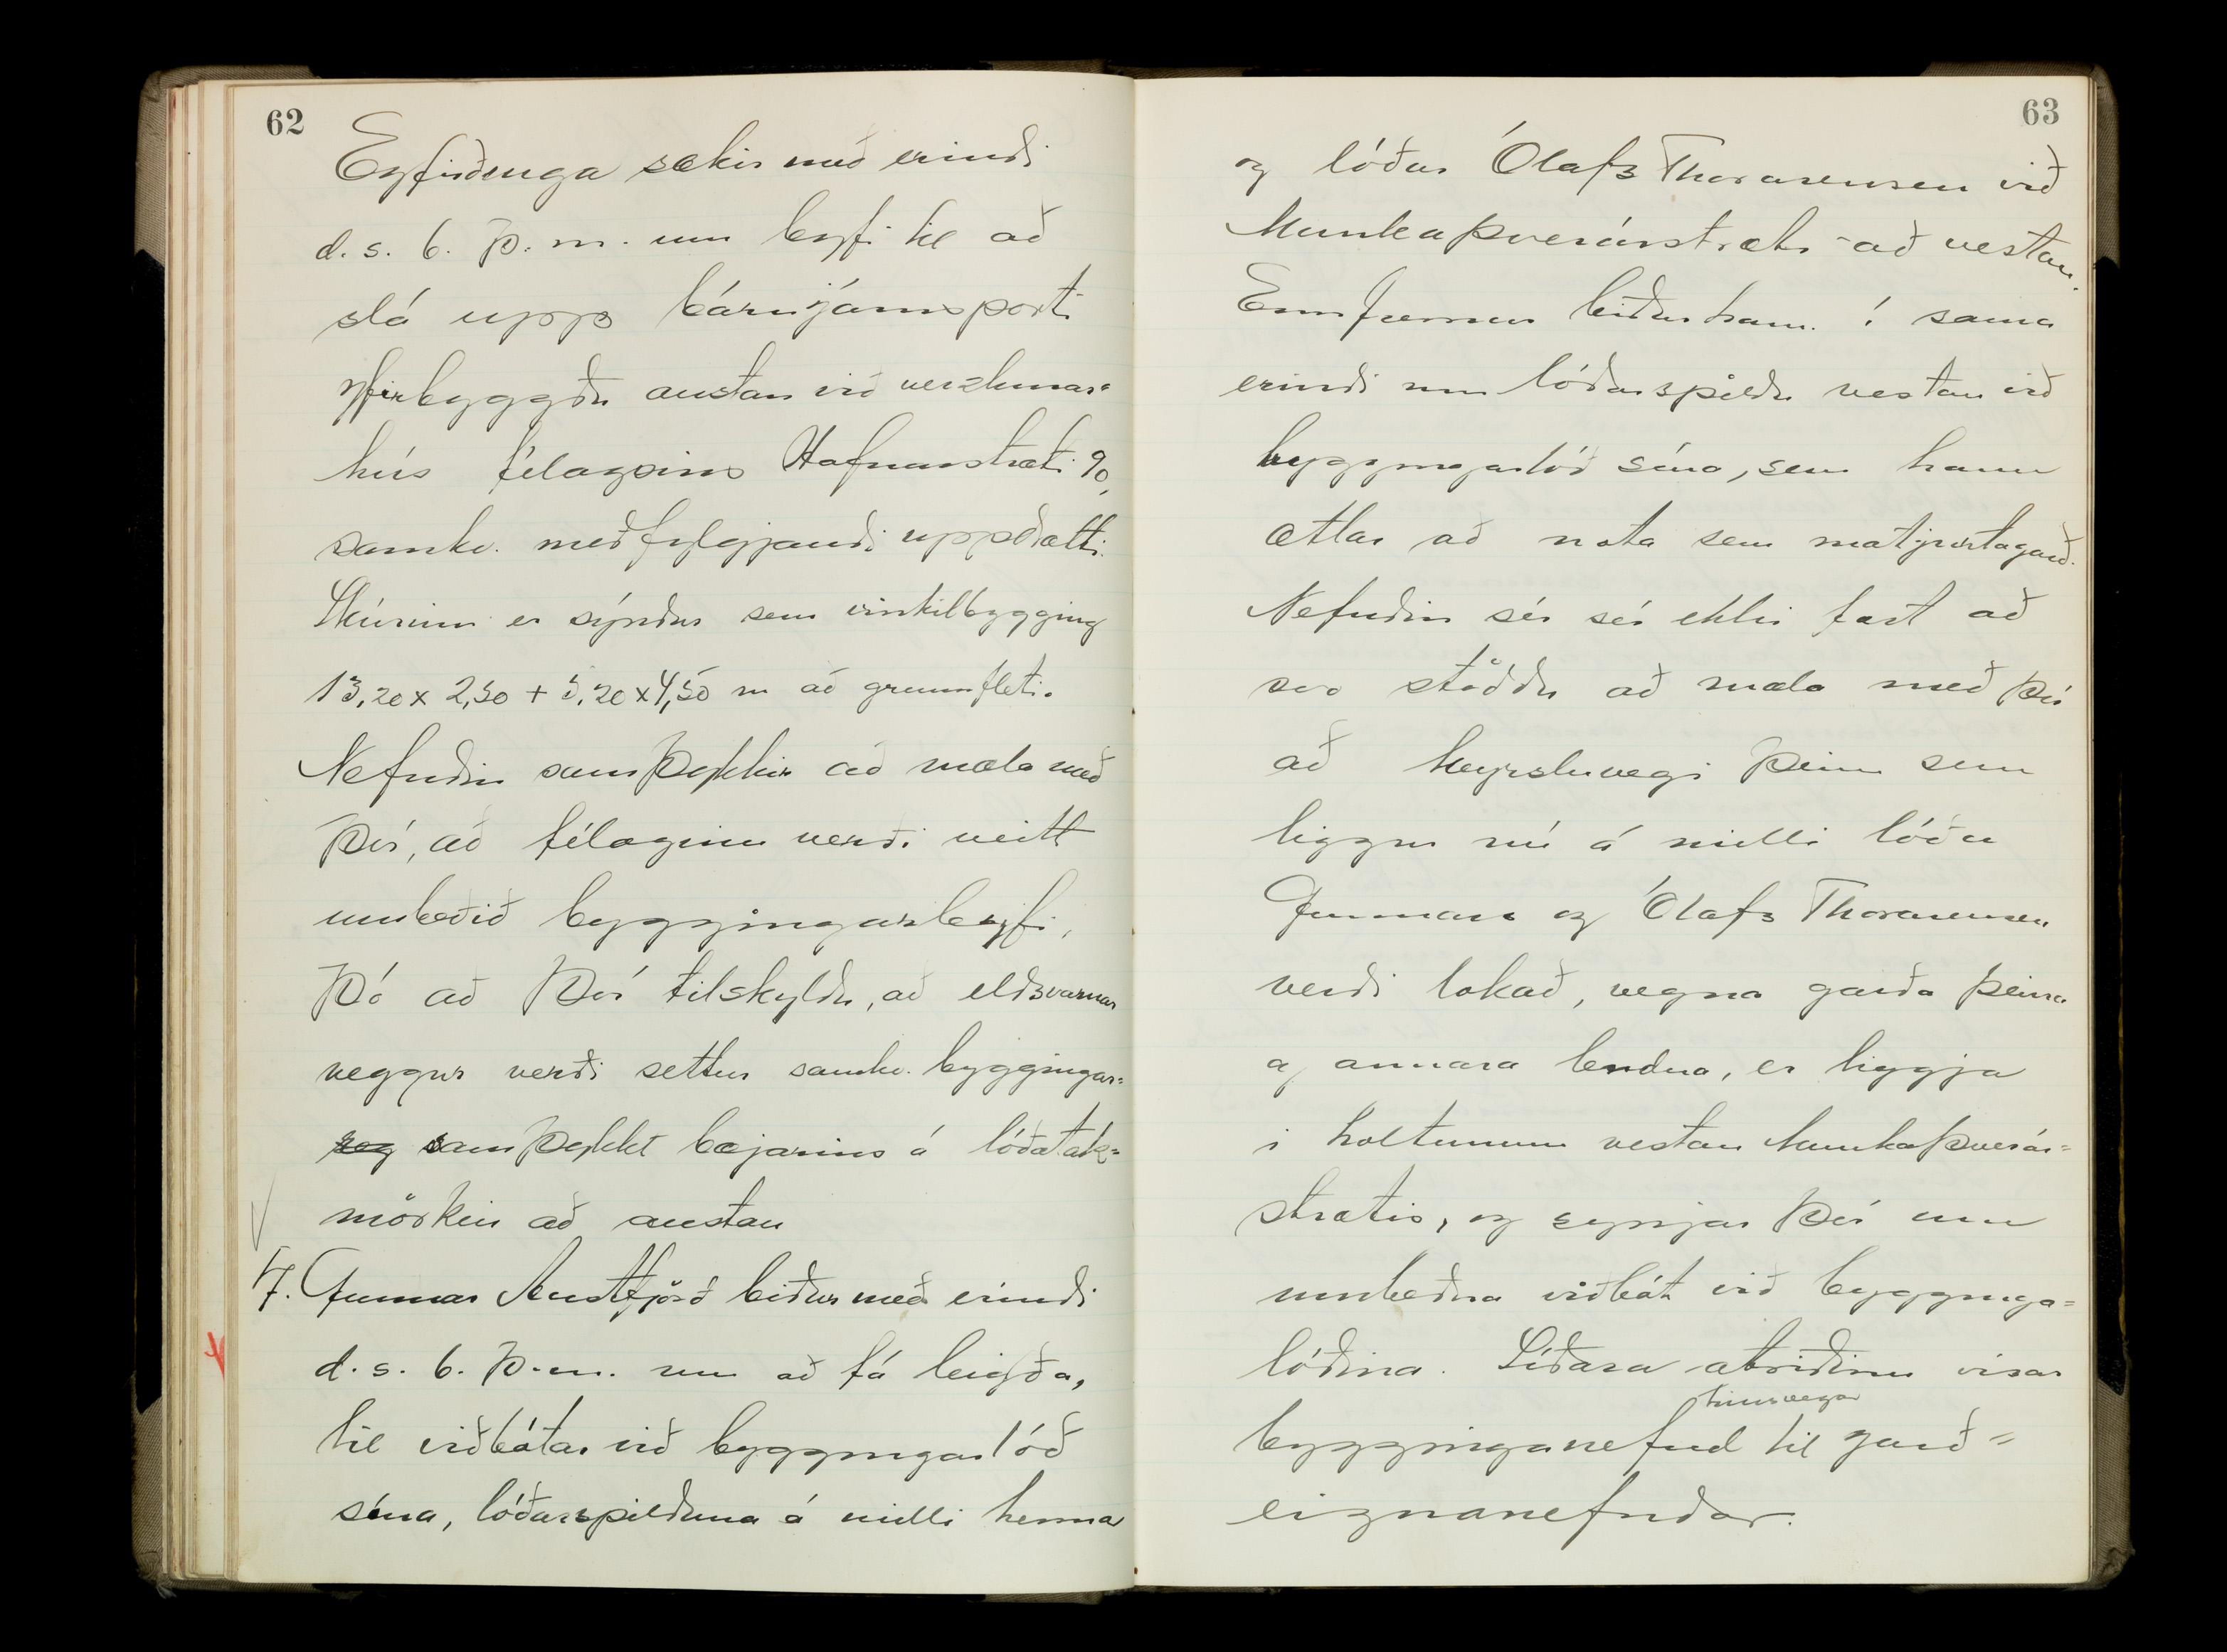 62
Eyfirðinga sækir með erindi
d.s. 6. þ.m. um leyfi til að
slá upp bárujárnsporti
yfirbyggðu austan við verzlunar=
hús félagsins Hafnarstræti 90,
samkv. meðfylgjandi uppdrætti.
Skúrinn er sýndur sem vinkilbygging
13,20 x 2,50 + 5,20 x 4,50 m að grunnfleti.
Nefndin samþykkir að mæla með
því, að félaginu verði veitt
umbeðið byggingarleyfi,
þó að því tilskyldu, að eldsvarnar
veggur verði settur samkv. byggingar=
reg samþykkt bæjarins á lóðatak=
mörkin að austan
7. Gunnar Austfjörð biður með erindi
d.s. 6. þ.m. um að fá leigða,
til viðbótar við byggingarlóð
sína, lóðarspilduna á milli hennar
63
og lóðar Ólafs Thorarensen við
Munkaþverárstræti að vestan.
Ennfremur biður hann í sama
erindi um lóðarspildu vestan við
byggingarlóð sína, sem hann
ætlar að nota sem matjurtagarð.
Nefndin sér sér ekki fært að
svo stöddu að mæla með því
að keyrsluvegi þeim sem
liggur nú á milli lóða
Gunnars og Ólafs Thorarensen
verði lokað, vegna garða þeirra
og annara lendna, er liggja
í holtunum vestan Munkaþverár=
strætis, og synjar því um
umbeðna viðbót við bygginga=
lóðina. Síðara atriðinu vísar
hinsvegar
bygginganefnd til garð=
eignanefndar.